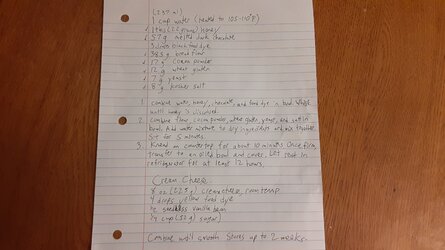 (237 ml)
1 cup water (heated to 105-110°F)
1 tbs (22 grams) honey
57 g melted dark chocolate
3 black food dye
383 g bread flour
12 g cocoa powder
12 g wheat gluten
7 g yeast
8 g kosher salt
1. combine water, honey, chocolate, and food dye in bowl. Whisk
until honey is dissolved.
2. combine flour, cocoa powder, wheat gluten, yeast, and salt in
bowl. Add water mixture to dry ingredients and mix together.
Set for 5 minutes.
3. Knead on countertop for about 10 minutes. Once firm,
transfer to an oiled bowl and cover. Let rest in
refrigerator for at least 12 hours.
Cream Cheese
8 oz (225 g) cream cheese, room temp.
4 drops yellow food dye
½ seedless vanilla bean
¼ cup (32 g) sugar
Combine until smooth. Stores up to 2 weeks.